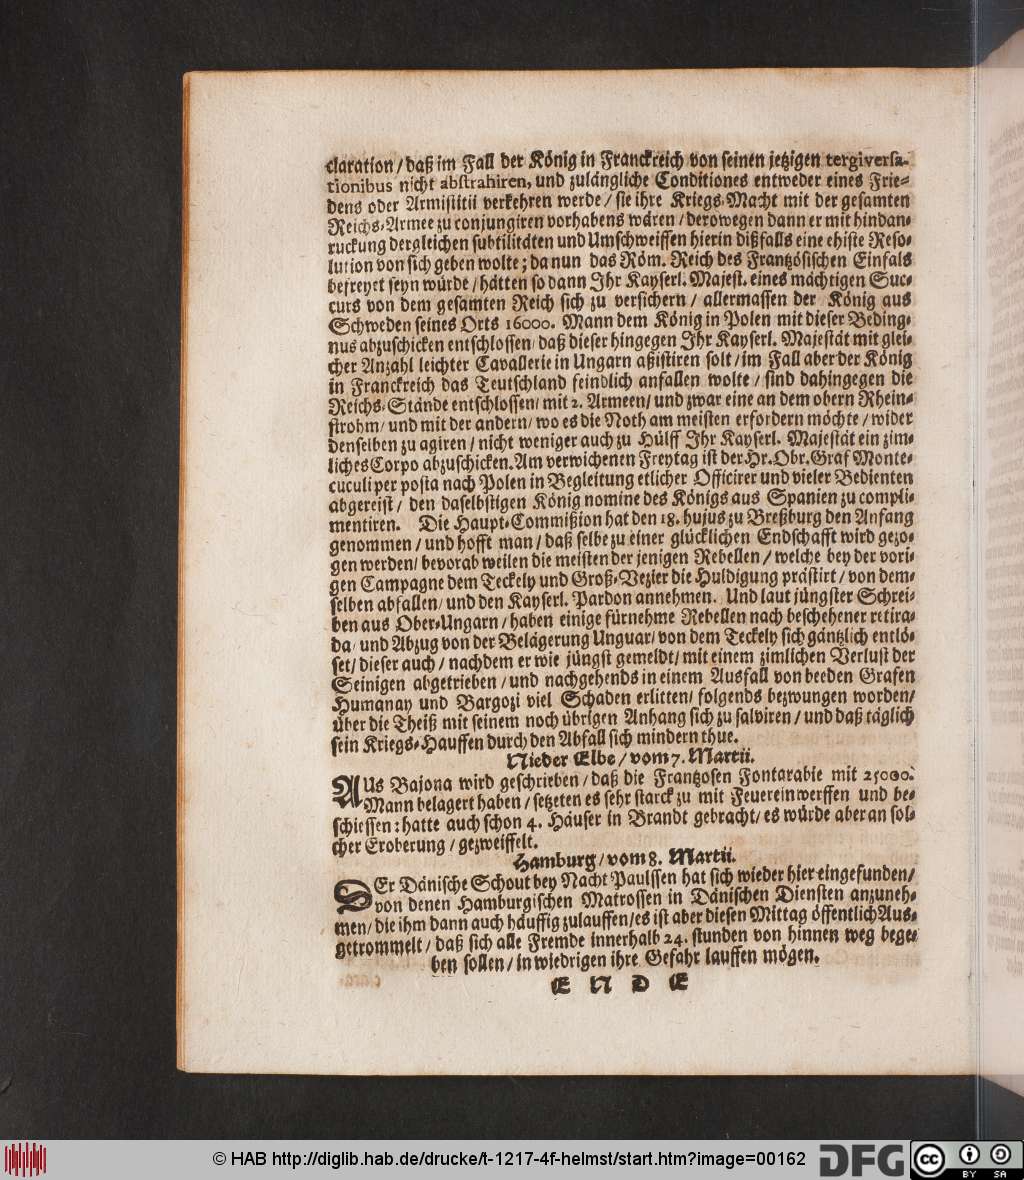 claration / daß im Fall der König in Franckreich von seinen jetzigen tergiversa-
tionibus nicht abstrahiren, und zulängliche Conditiones entweder eines Frie-
dens oder Armistitii verkehren werde / sie ihre Kriegs-Macht mit der gesamten
Reichs-Armee zu conjungiren vorhabens wären / derowegen dann er mit hindan-
ruckung dergleichen subtilitäten und Umschweiffen hierin dißfalls eine ehiste Reso-
lution von sich geben wolte; da nun das Röm. Reich des Frantzösischen Einfals
befreyet seyn würde / hätten so dann Ihr Kayserl. Majest. eines mächtigen Suc-
curs von dem gesamten Reich sich zu versichern / allermassen der König aus
Schweden seines Orts 16000. Mann dem König in Polen mit dieser Beding-
nus abzuschicken entschlossen / daß dieser hingegen Ihr Kayserl. Majestät mit glei-
cher Anzahl leichter Cavallerie in Ungarn aßistiren solt / im Fall aber der König
in Franckreich das Teutschland feindlich anfallen wolte / sind dahingegen die
Reichs-Stände entschlossen / mit 2. Armeen / und zwar eine an dem obern Rhein-
strohm / und mit der andern / wo es die Noth am meisten erfordern möchte / wider
denselben zu agiren / nicht weniger auch zu Hülff Ihr Kayserl. Majestät ein zim-
liches Corpo abzuschicken. Am verwichenen Freytag ist der Hr. Obr. Graf Monte-
cuculi per posta nach Polen in Begleitung etlicher Officirer und vieler Bedienten
abgereist / den daselbstigen König nomine des Königs aus Spanien zu compli-
mentiren. Die Haupt-Commißion hat den 18. hujus zu Breßburg den Anfang
genommen / und hofft man / daß selbe zu einer glücklichen Endschafft wird gezo-
gen werden / bevorab weilen die meisten der jenigen Rebellen / welche bey der vori-
gen Campagne dem Teckely und Groß-Vezier die Huldigung prästirt / von dem-
selben abfallen / und den Kayserl. Pardon annehmen. Und laut jüngster Schrei-
ben aus Ober-Ungarn / haben einige fürnehme Rebellen nach beschehener retira-
da / und Abzug von der Belägerung Unguar / von dem Teckely sich gäntzlich entlö-
set / dieser auch / nachdem er wie jüngst gemeldt / mit einem zimlichen Verlust der
Seinigen abgetrieben / und nachgehends in einem Ausfall von beeden Grafen
Humanay und Bargozi viel Schaden erlitten / folgends bezwungen worden /
über die Theiß mit seinem noch übrigen Anhang sich zu salviren / und daß täglich
sein Kriegs-Hauffen durch den Abfall sich mindern thue.
Nieder Elbe / vom 7. Martii.
AUs Bajona wird geschrieben / daß die Frantzosen Fontarabie mit 25000.
Mann belagert haben / setzeten es sehr starck zu mit Feuereinwerffen und be-
schiessen: hatte auch schon 4. Häuser in Brandt gebracht / es würde aber an sol-
cher Eroberung / gezweiffelt.
Hamburg / vom 8. Martii.
DEr Dänische Schout bey Nacht Paulssen hat sich wieder hier eingefunden /
von denen Hamburgischen Matrossen in Dänischen Diensten anzuneh-
men / die ihm dann auch häuffig zulauffen / es ist aber diesen Mittag öffentlich Aus-
getrommelt / daß sich alle Fremde innerhalb 24. stunden von hinnen weg bege-
ben sollen / in wiedrigen ihre Gefahr lauffen mögen.
E N D E
© HAB http://diglib.hab.de/drucke/t-1217-4f-helmst/start.htm?image=00162
DFG
cc BY SA